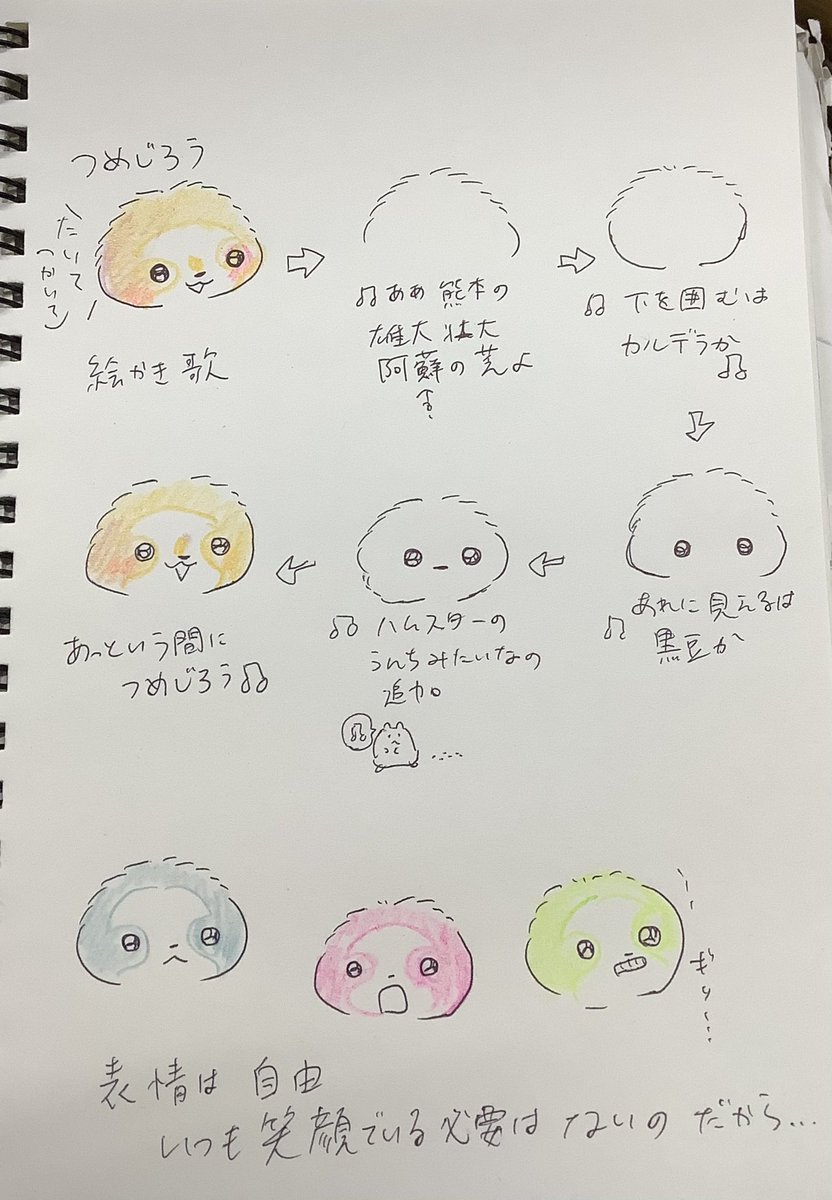 つめじろう
かいて
つかいて
絵かき歌
♫ああ 熊本の
雄大 壮大
阿蘇の 芒よ
♫下を囲むは
カルデラか
♫
♫あれに見えるは
黒豆か
♫ハムスターの
うんちみたいなの
追加
♫
あっという間に
つめじろう♫
ぎり...
表情は自由
いつも笑顔でいる必要はないのだから...